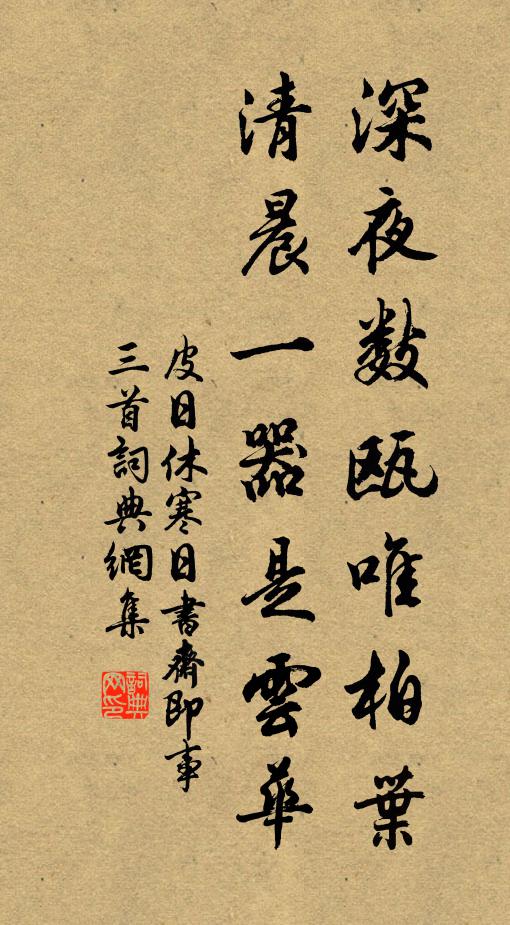 深夜數甌唯柏葉
清晨一器是雲華
皮日休寒日書齋即事
三首詞典網集
詞典網印